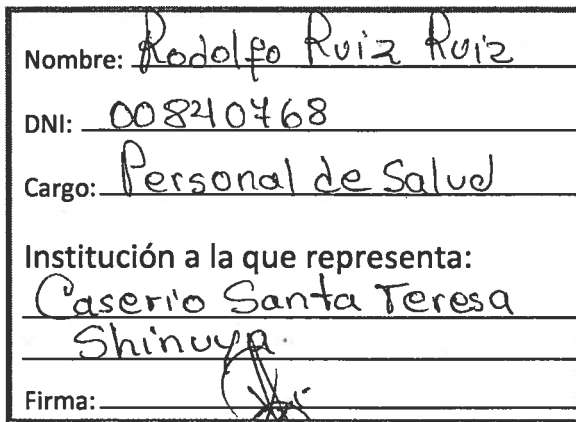 Nombre: Rodolfo Ruiz Ruiz
DNI: 00840768
Cargo: Personal de Salud
Institución a la que representa:
Caserio Santa Teresa
Shinuya.
Firma: